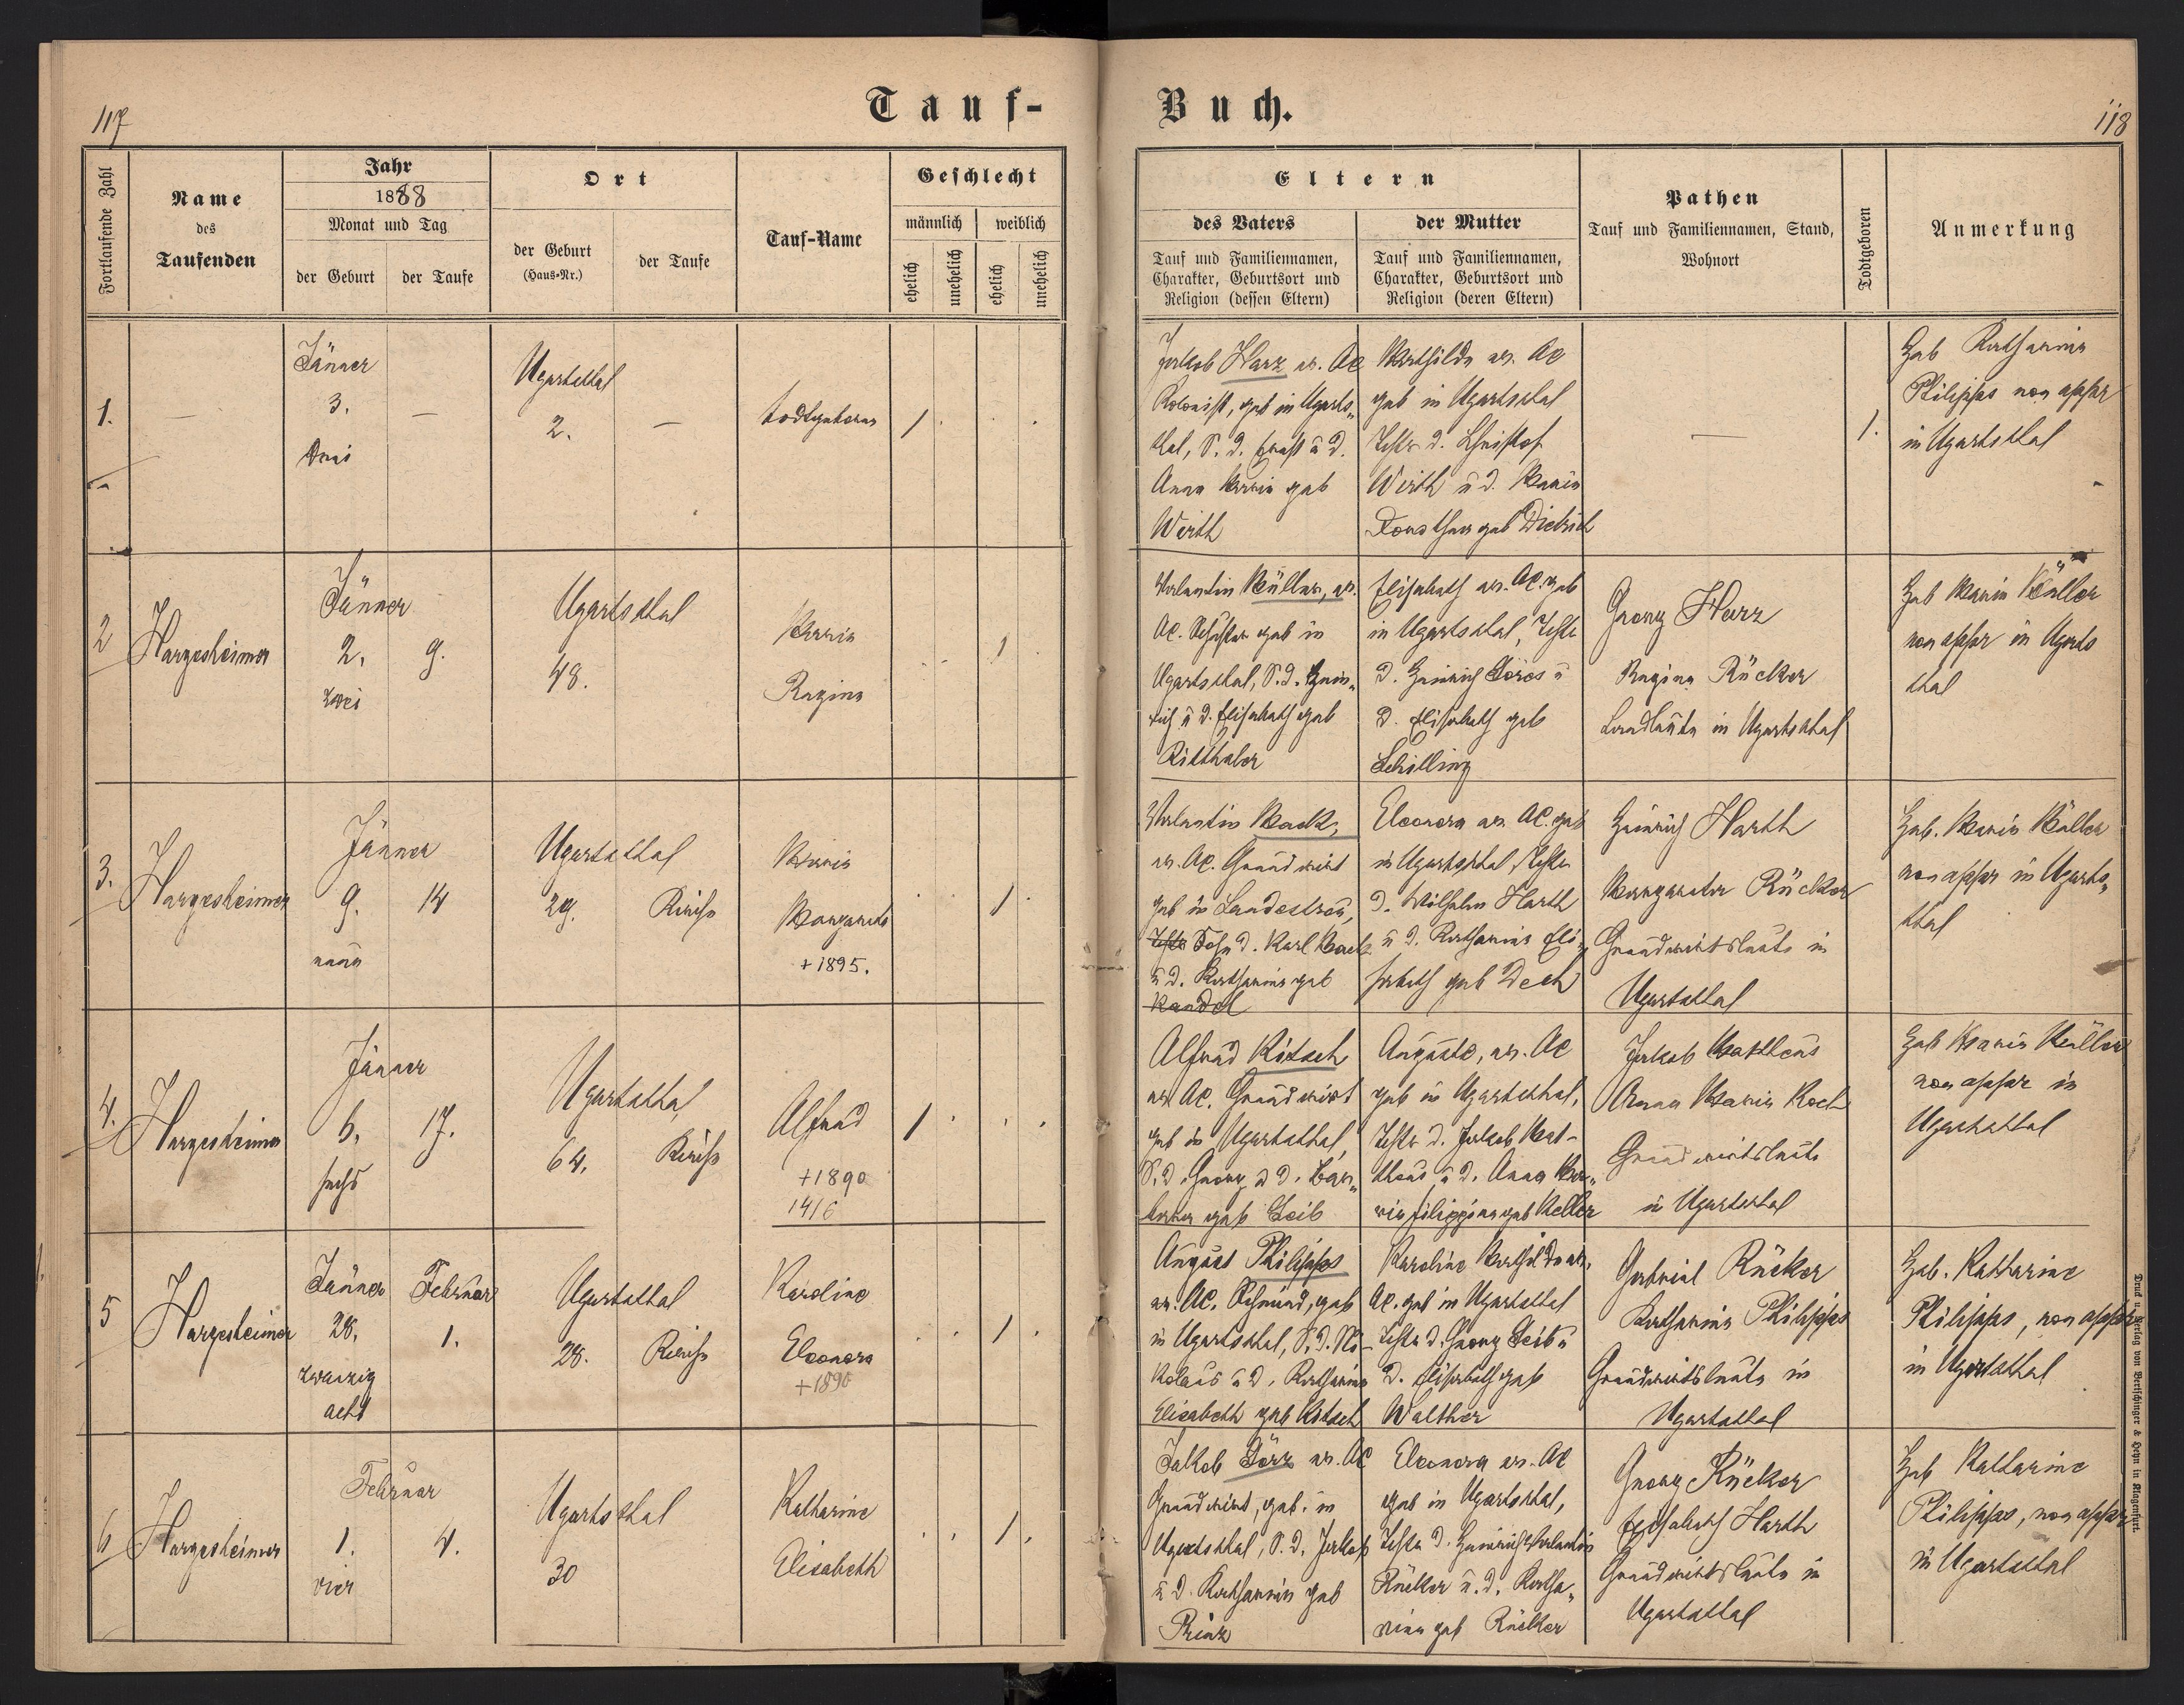 117
Tauf-
Buch.
118
Fortlaufende Zahl
Name
des
Taufenden
Jahr
1888
Monat und Tag
der Geburt
der Taufe
Ort
der Geburt
(Haus-Nr.)
der Taufe
Tauf-Name
Geschlecht
männlich
weiblich
ehelich
unehelich
ehelich
unehelich
Eltern
des Vaters
Tauf und Familiennamen,
Charakter, Geburtsort und
Religion (dessen Eltern)
der Mutter
Tauf und Familiennamen,
Charakter, Geburtsort und
Religion (deren Eltern)
Pathen
Tauf und Familiennamen, Stand,
Wohnort
Todtgeboren
Anmerkung
1.
—
Jänner
3.
drei
—
Ugartsthal
2.
—
todtgeboren
1
Jakob Harz ev. AC
Kolonist, geb in Ugarts-
thal, S. d. Ernst u d.
Anna Maria geb
Werth
Mathilde ev. AC
geb in Ugartsthal
Tcht. d. Christof
Werth u d. Maria
Dorothea geb Dietrich
—
1.
Heb Katharina
Philipps non appr
in Ugartsthal
2
Hargesheimer
Jänner
2.
zwei
9.
Ugartsthal
48.
Maria
Regina
1
Valentin Müller, ev.
AC. Schuster geb in
Ugartsthal, S. d. Hein-
rich u d. Elisabeth geb
Ritthaler
Elisabeth ev. AC. geb
in Ugartsthal, Tcht
d. Heinrich Döros u
d. Elisabeth geb
Schilling
Georg Harz
Regina Rücker
Landleute in Ugartsthal
Heb Maria Müller
non appr in Ugarts
thal
3.
Hargesheimer
Jänner
9.
neun
14
Ugartsthal
29.
Kirche
Maria
Margareta
+ 1895.
1
Valentin Mack,
ev. AC. Grundwirt
geb in Landestreu,
Sohn d. Karl Mack
u d. Katharina geb
Kandel
Eleonora ev AC. geb
in Ugartsthal, Tcht
d. Wilhelm Harth
u d. Katharina Eli-
sabeth geb Dech
Heinrich Harth
Margareta Rücker
Grundwirtsleute in
Ugartsthal
Heb. Maria Müller
non appr in Ugarts-
thal
4.
Hargesheimer
Jänner
6.
sechs
17.
Ugartsthal
64.
Kirche
Alfred
+ 1890
14/6
1
Alfred Kitsch
ev. AC. Grundwirt
geb in Ugartsthal,
S. d. Georg u d. Bar-
bara geb Leib
Auguste, ev. AC
geb in Ugartsthal,
Tcht d. Jakob Mat-
theus u d. Anna Ma-
ria Filippina geb Keller
Jakob Mattheus
Anna Maria Koch
Grundwirtsleute
in Ugartsthal
Heb Maria Müller
non appr in
Ugartsthal
5
Hargesheimer
Jänner
28.
zwanzig
acht
Februar
1.
Ugartsthal
28.
Kirche
Karoline
Eleonora
+ 1890
1
August Philipps
ev. AC. Schmied, geb
in Ugartsthal, S. d. Ni-
kolaus u d. Katharina
Elisabeth geb Kitsch
Karoline Mathilde ev.
AC. geb in Ugartsthal
Tcht d. Georg Leib u
d. Elisabeth geb
Walther
Gabriel Rücker
Katharina Philipps
Grundwirtsleute in
Ugartsthal
Heb. Katharine
Philipps, non appr
in Ugartsthal
6
Hargesheimer
Februar
1.
vier
4.
Ugartsthal
30
Katharine
Elisabeth
1
Jakob Dörr ev. AC
Grundwirt, geb. in
Ugartsthal, S. d. Jakob
u d. Katharina geb
Prinz
Eleonora ev. AC
geb in Ugartsthal,
Tcht d. Heinrich Valentin
Rücker u. d. Katha-
rina geb Rücker
Georg Rücker
Elisabeth Harth
Grundwirtsleute in
Ugartsthal
Heb Katharine
Philipps, non appr
in Ugartsthal
Druck u. Verlag von Bertschinger & Heyn in Klagenfurt.